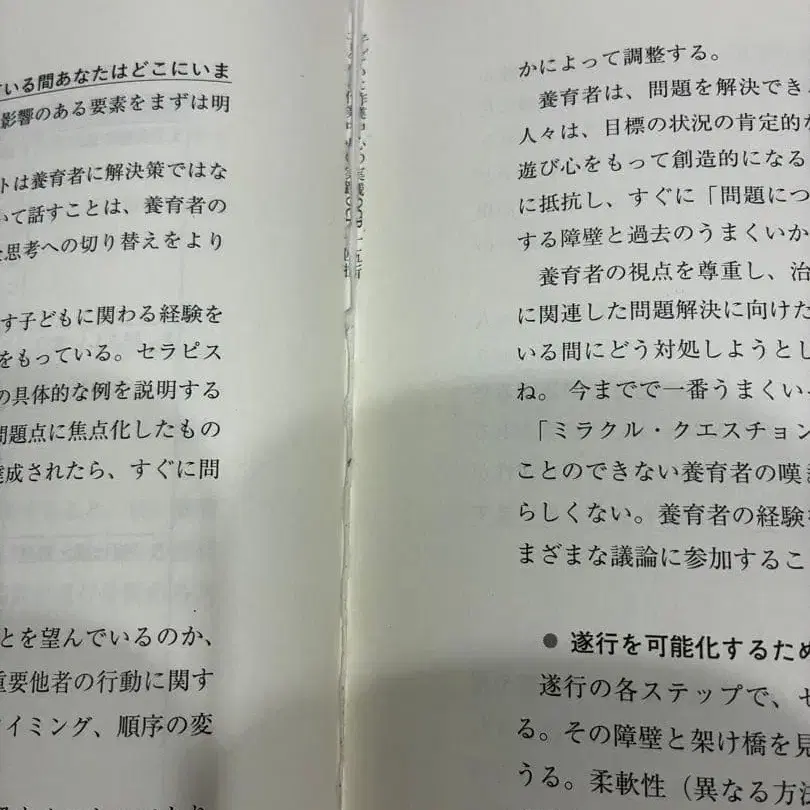 ている間あなたはどこにいま
影響のある要素をまずは明
トは養育者に解決策ではな
いて話すことは、養育者の
思考への切り替えをより
す子どもに関わる経験を
をもっている。セラピス
の具体的な例を説明する
問題点に焦点化したもの
達成されたら、すぐに問
とを望んでいるのか、
重要他者の行動に関す
タイミング、順序の変
かによって調整する。
養育者は、問題を解決でき
人々は、目標の状況の肯定的な
遊び心をもって創造的になる
に抵抗し、すぐに「問題につ
する障壁と過去のうまくいか
養育者の視点を尊重し、治
に関連した問題解決に向けた
いる間にどう対処しようとし
ね。 今までで一番うまくい
「ミラクル・クエスチョン
ことのできない養育者の嘆き
らしくない。養育者の経験
まざまな議論に参加するこ
● 遂行を可能化するため
遂行の各ステップで、セ
る。その障壁と架け橋を見
うる。柔軟性（異なる方法